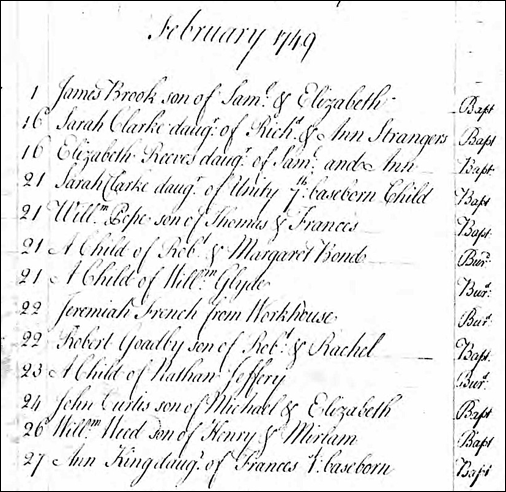 February 1749
1 James Brook son of Sam.l & Elizabeth Bapt
16 Sarah Clarke daug.r of Rich.d & Ann Strangers Bapt
16 Elizabeth Reeves daug.r of Sam.l and Ann Bapt
21 Sarah Clarke daug.r of Unity 7.th baseborn Child Bapt
21 Will.m Pope son of Thomas & Frances Bapt
21 A Child of Rob.t & Margaret Bond Bur.d
21 A Child of Will.m Glyde Bur.d
22 Jeremiah French from Workhouse Bur.d
22 Robert Goadby son of Rob.t & Rachel Bapt
23 A Child of Nathan Jeffery Bur.d
24 John Curtis son of Michael & Elizabeth Bapt
26 Will.m Weed son of Henry & Miriam Bapt
27 Ann King daug.r of Frances baseborn Bapt